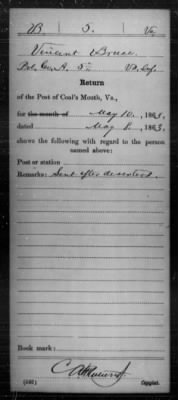 B 5. Va.
Vincent Bruce
Pvt., Co. A. 5" Va. Inf.
Return
of the Post of Coal's Mouth, Va.,
for the month of May 10., 1863.
dated May 8., 1863.
shows the following with regard to the person
named above:
Post or station
Remarks: Sent after deserters.
Book mark:
Copyist.